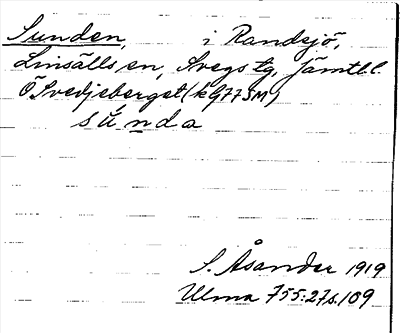 Sunden, i Randsjö,
Linsälls sn, Svegs tg, Jämtl.l.
Ö Svedjeberget (kg 77 SM)
sunda
S. Åsander 1919
Ulma 755:27 s.109